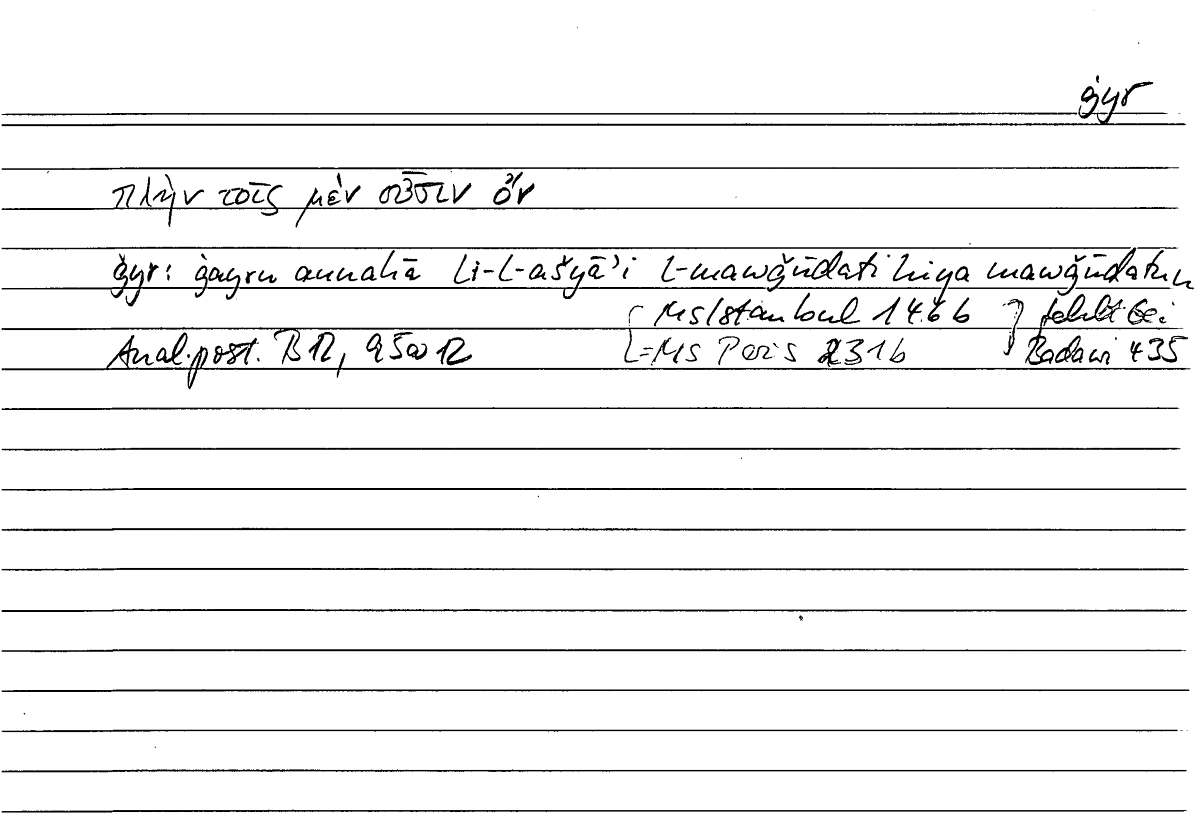 ġyr
πλὴν τοῖς μὲν οὖσιν ὄν
ġyr: ġayru annahā li-l-ašyā'i l-mawǧūdati hiya mawǧūdatun
Ms Istanbul 146b fehlt bei
Anal. post. B 12, 95a12 = Ms Paris 231b Badawi 435